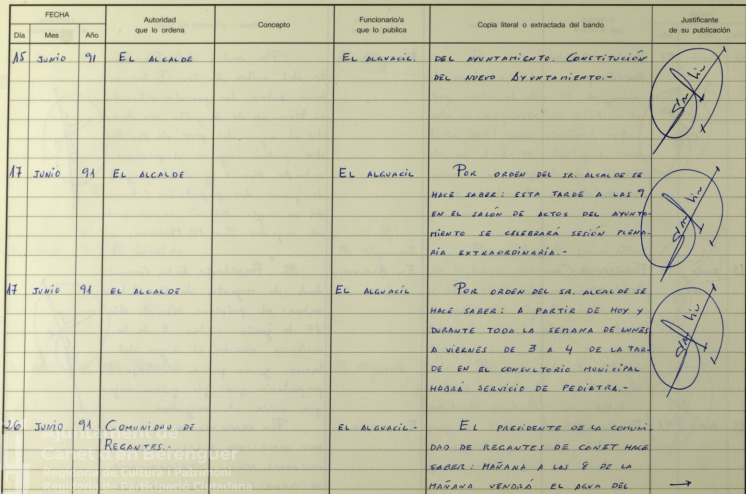 FECHA
Autoridad
que lo ordena
Concepto
Funcionario/a
que lo publica
Copia literal o extractada del bando
Justificante
de su publicación
Día Mes Año
15 JUNIO 91 EL ALCALDE EL ALGUACIL. DEL AYUNTAMIENTO. CONSTITUCIÓN
DEL NUEVO AYUNTAMIENTO.-
17 JUNIO 91 EL ALCALDE EL ALGUACIL POR ORDEN DEL SR. ALCALDE SE
HACE SABER: ESTA TARDE A LAS 9
EN EL SALÓN DE ACTOS DEL AYUNTA-
MIENTO SE CELEBRARÁ SESIÓN PLENA-
RIA EXTRAORDINARIA.-
17 JUNIO 91 EL ALCALDE EL ALGUACIL POR ORDEN DEL SR. ALCALDE SE
HACE SABER: A PARTIR DE HOY Y
DURANTE TODA LA SEMANA DE LUNES
A VIERNES DE 3 A 4 DE LA TAR-
DE EN EL CONSULTORIO MUNICIPAL
HABRÁ SERVICIO DE PEDIATRA.-
26 JUNIO 91 COMUNIDAD DE EL ALGUACIL.- EL PRESIDENTE DE LA COMUNI-
REGANTES.- DAD DE REGANTES DE CANET HACE
SABER: MAÑANA A LAS 8 DE LA
MAÑANA VENDRÁ EL AGUA DEL
Ajuntament de
Canet d'en Berenguer
Regidoria de Cultura i Patrimoni
Regidoria de Participació Ciutadana